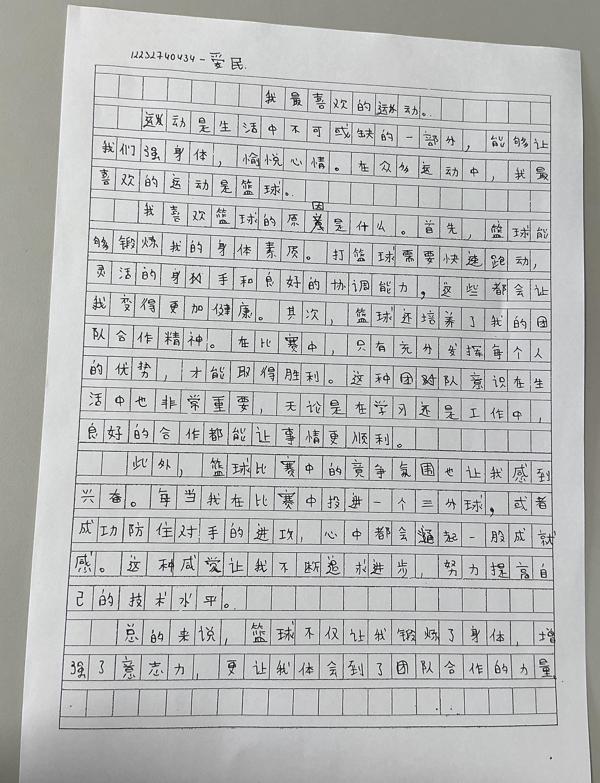 12232740434-爱民.
我最喜欢的运动。
运动是生活中不可或缺的一部分，能够让
我们强身体，愉悦心情。在众多运动中，我最
喜欢的运动是篮球。
我喜欢篮球的原因是什么。首先，篮球能
够锻炼我的身体素质。打篮球需要快速跑动，
灵活的身手和良好的协调能力，这些都会让
我变得更加健康。其次，篮球还培养了我的团
队合作精神。在比赛中，只有充分发挥每个人
的优势，才能取得胜利。这种团队意识在生
活中也非常重要，无论是在学习还是工作中，
良好的合作都能让事情更顺利。
此外，篮球比赛中的竞争氛围也让我感到
兴奋。每当我在比赛中投进一个三分球，或者
成功防住对手的进攻，心中都会涌起一股成就
感。这种感觉让我不断追求进步，努力提高自
己的技术水平。
总的来说，篮球不仅让我锻炼了身体，增
强了意志力，更让我体会到了团队合作的力量。